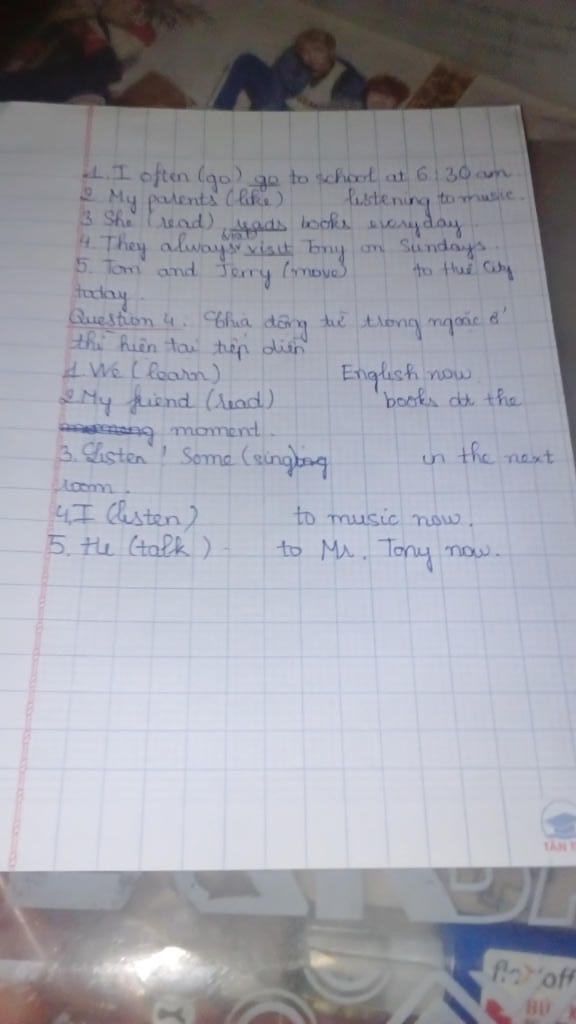 1. I often (go) go to school at 6:30 am.
2 My parents (like) listening to music.
3 She (read) reads books everyday.
4. They always (visit) visit Tony on Sundays.
5. Tom and Jerry (move) to Huế City
today.
Question 4. Chia động từ trong ngoặc ở
thì hiện tại tiếp diễn
1 We (learn) English now
2 My friend (read) books at the
moment.
3. Listen! Some (sing) in the next
room.
4. I (listen) to music now.
5. He (talk) to Mr. Tony now.
TÂN
off